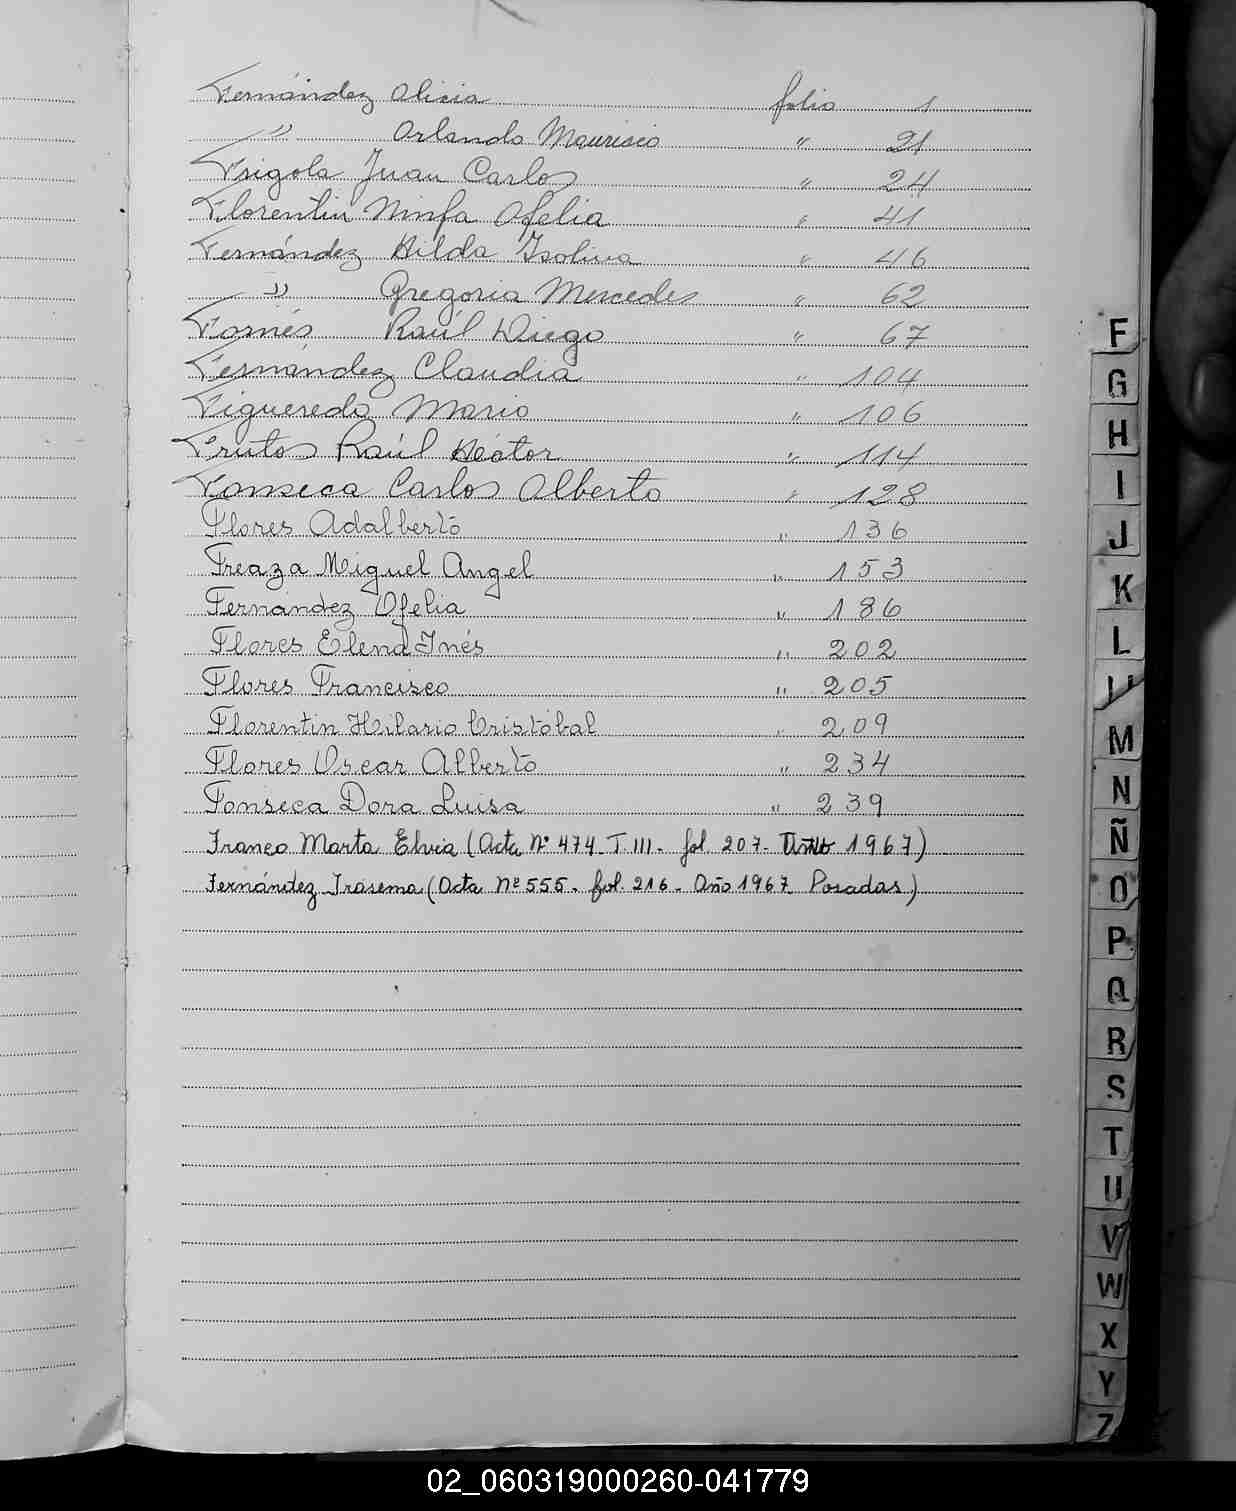 Fernández Alicia folio 1
" Orlando Mauricio " 21
Frigola Juan Carlos " 24
Florentin Ninfa Ofelia " 41
Fernández Hilda Isolina " 46
" Gregoria Mercedes " 62
Fornés Raúl Diego " 67
Fernández Claudia " 104
Figueredo Mario " 106
Frutos Raúl Héctor " 114
Fonseca Carlos Alberto " 128
Flores Adalberto " 136
Freaza Miguel Angel " 153
Fernandez Ofelia " 186
Flores Elena Inés " 202
Flores Francisco " 205
Florentin Hilario Cristóbal " 209
Flores Oscar Alberto " 234
Fonseca Dora Luisa " 239
Franco Marta Elvia (Acta Nº 474 - T III - fol 207 - 1967)
Fernández Irasema (Acta Nº 555 - fol. 216 - Año 1967 Posadas)
F
G
H
I
J
K
L
M
N
Ñ
O
P
Q
R
S
T
U
V
W
X
Y
Z
02_060319000260-041779